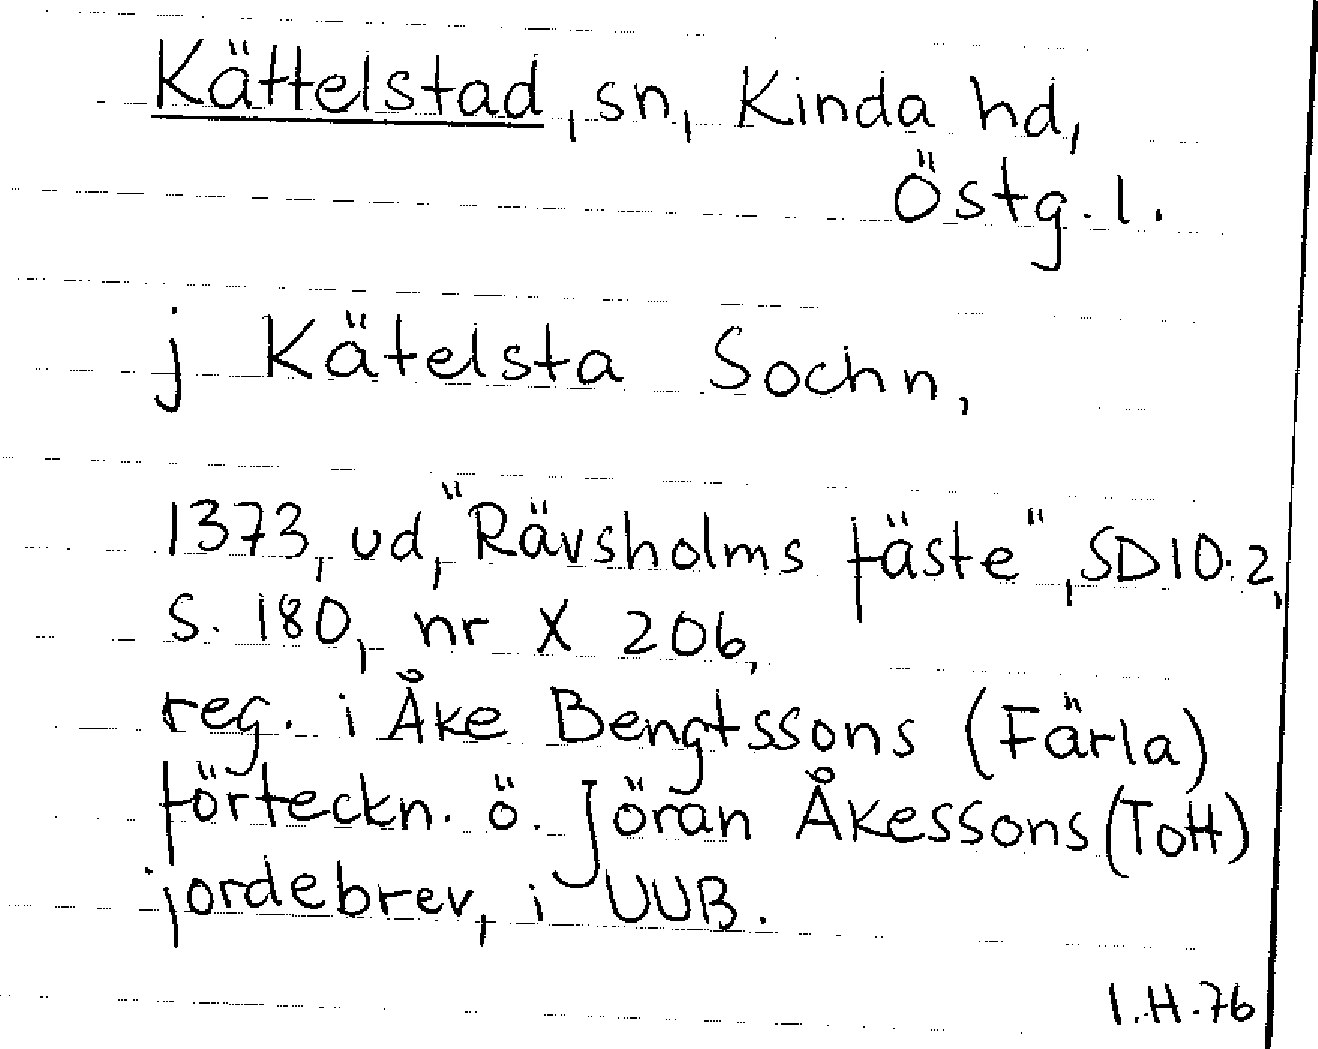 Kättelstad, sn, Kinda hd,
Östg. l.
j Kätelsta Sochn,
1373, ud, "Rävsholms fäste", SD10:2,
S. 180, nr X 206,
reg. i Åke Bengtssons (Färla)
förteckn. ö. Jöran Åkessons (Tott)
jordebrev, i UUB.
I.H.76